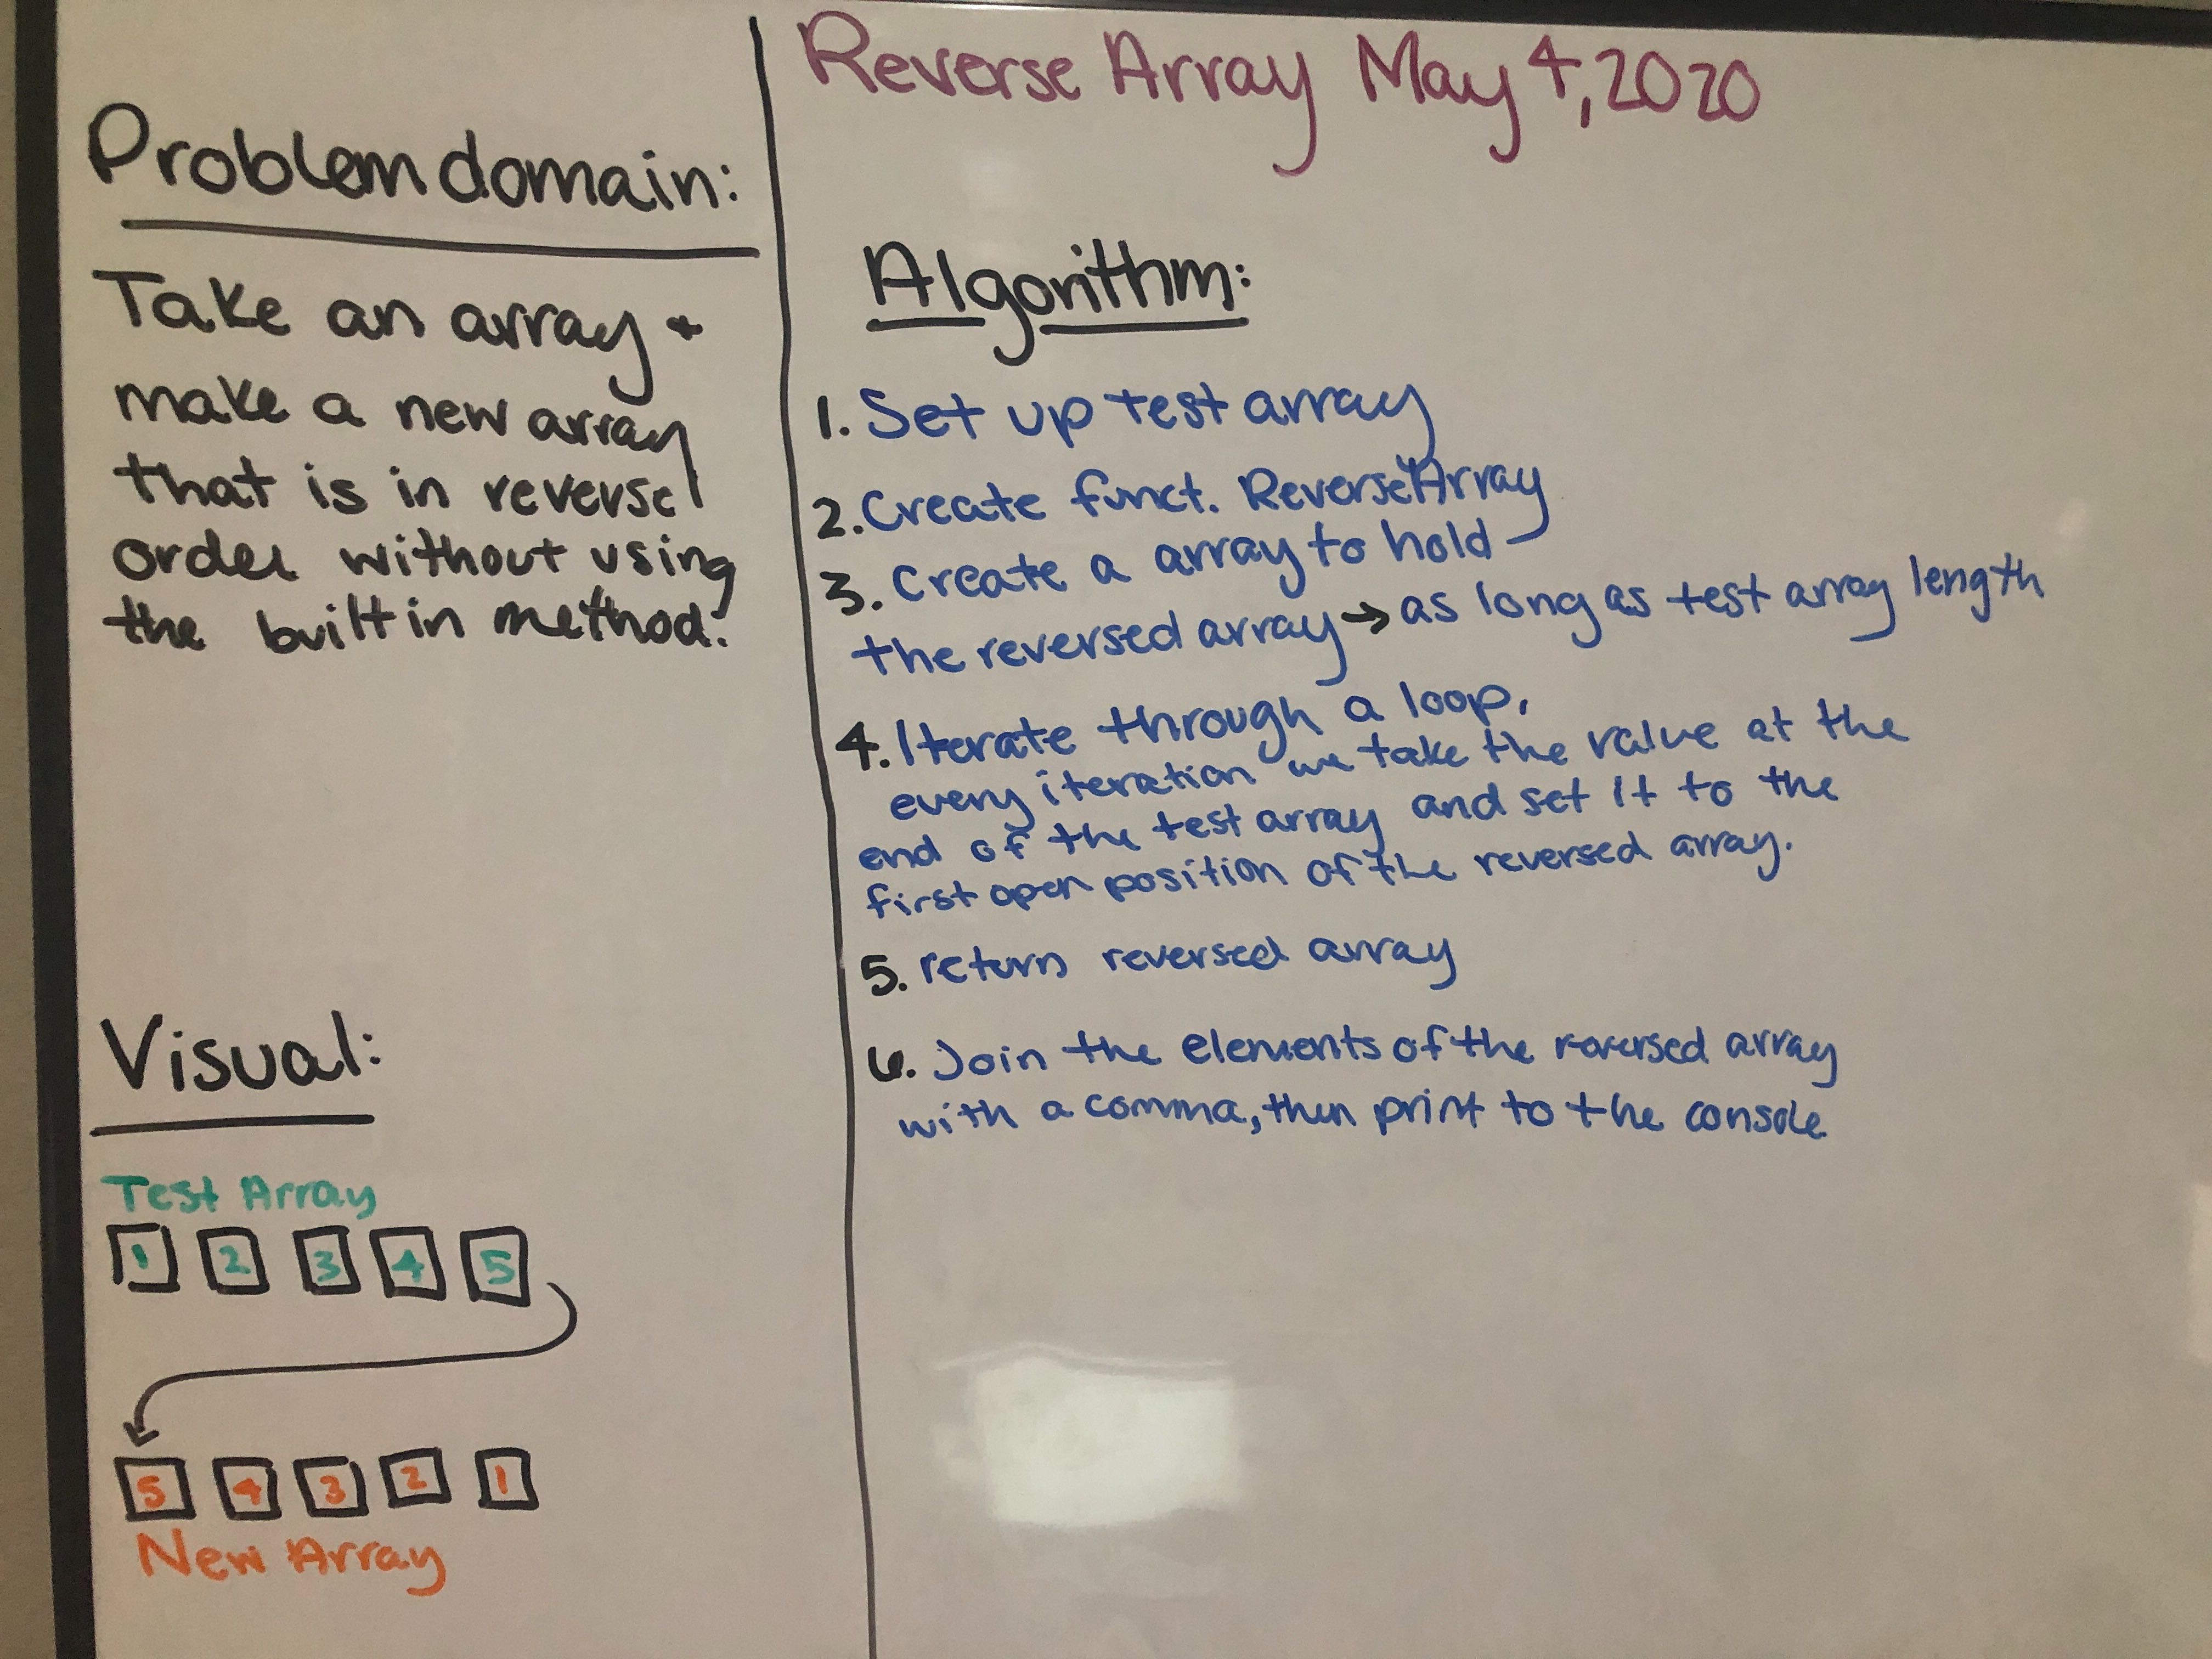 Reverse Array May 4, 2020
Problem domain:
Take an array +
make a new array
that is in reverse
order without using
the built in method.
Visual:
Test Array
1 2 3 4 5
5 4 3 2 1
New Array
Algorithm:
1. Set up test array
2. Create funct. ReverseArray
3. Create a array to hold
the reversed array → as long as test array length
4. Iterate through a loop,
every iteration we take the value at the
end of the test array and set it to the
first open position of the reversed array.
5. return reversed array
6. Join the elements of the reversed array
with a comma, then print to the console